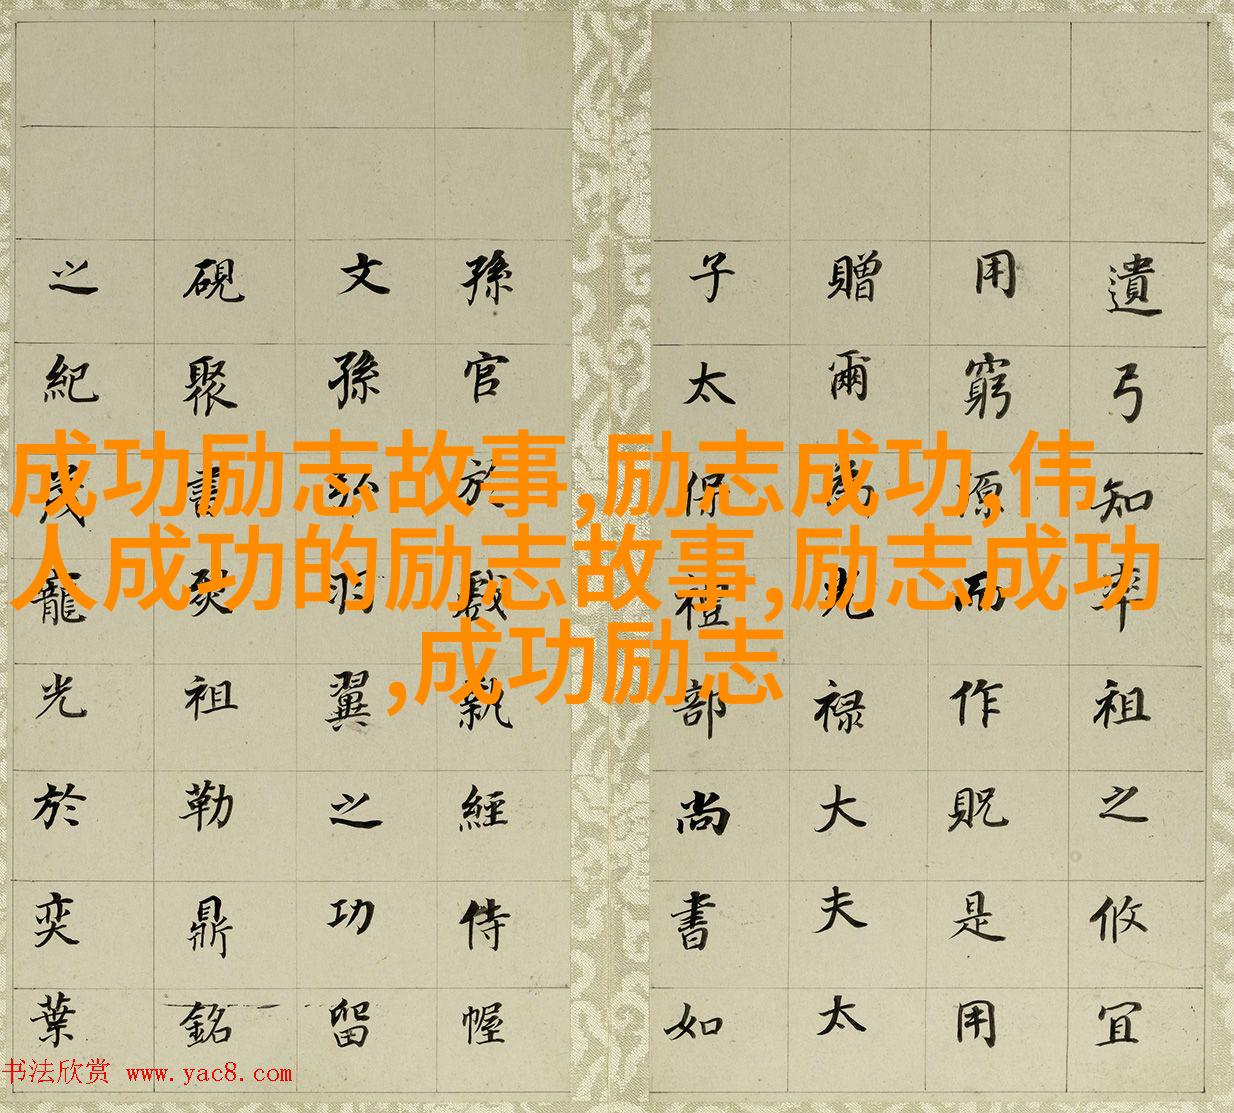 遺弓知率祖之攸宜
用窮源而作貺是用
贈爾為光禄大夫太
子太保禮部尚書如
孫官於戲親經侍幄
文孫弘羽翼之功留
硯聚書祖勒鼎銘
之紀茂龍光於奕葉
成功励志故事,励志成功,伟
人成功的励志故事,励志成功
,成功励志
书法欣赏 www.yac8.com